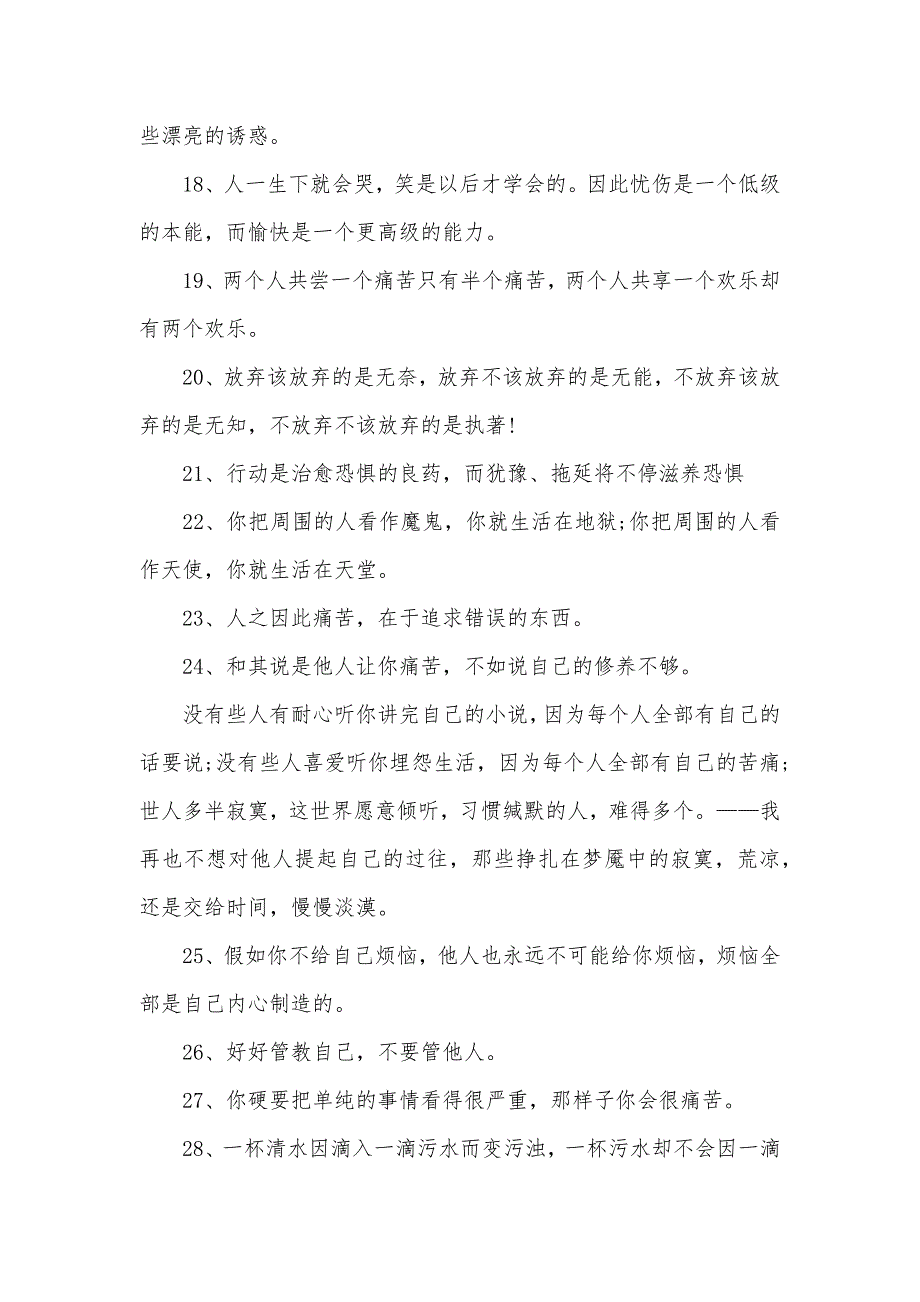 些漂亮的诱惑。
18、人一生下就会哭，笑是以后才学会的。因此忧伤是一个低级
的本能，而愉快是一个更高级的能力。
19、两个人共尝一个痛苦只有半个痛苦，两个人共享一个欢乐却
有两个欢乐。
20、放弃该放弃的是无奈，放弃不该放弃的是无能，不放弃该放
弃的是无知，不放弃不该放弃的是执著!
21、行动是治愈恐惧的良药，而犹豫、拖延将不停滋养恐惧
22、你把周围的人看作魔鬼，你就生活在地狱;你把周围的人看
作天使，你就生活在天堂。
23、人之因此痛苦，在于追求错误的东西。
24、和其说是他人让你痛苦，不如说自己的修养不够。
没有些人有耐心听你讲完自己的小说，因为每个人全部有自己的
话要说;没有些人喜爱听你埋怨生活，因为每个人全部有自己的苦痛;
世人多半寂寞，这世界愿意倾听，习惯缄默的人，难得多个。——我
再也不想对他人提起自己的过往，那些挣扎在梦魇中的寂寞，荒凉，
还是交给时间，慢慢淡漠。
25、假如你不给自己烦恼，他人也永远不可能给你烦恼，烦恼全
部是自己内心制造的。
26、好好管教自己，不要管他人。
27、你硬要把单纯的事情看得很严重，那样子你会很痛苦。
28、一杯清水因滴入一滴污水而变污浊，一杯污水却不会因一滴